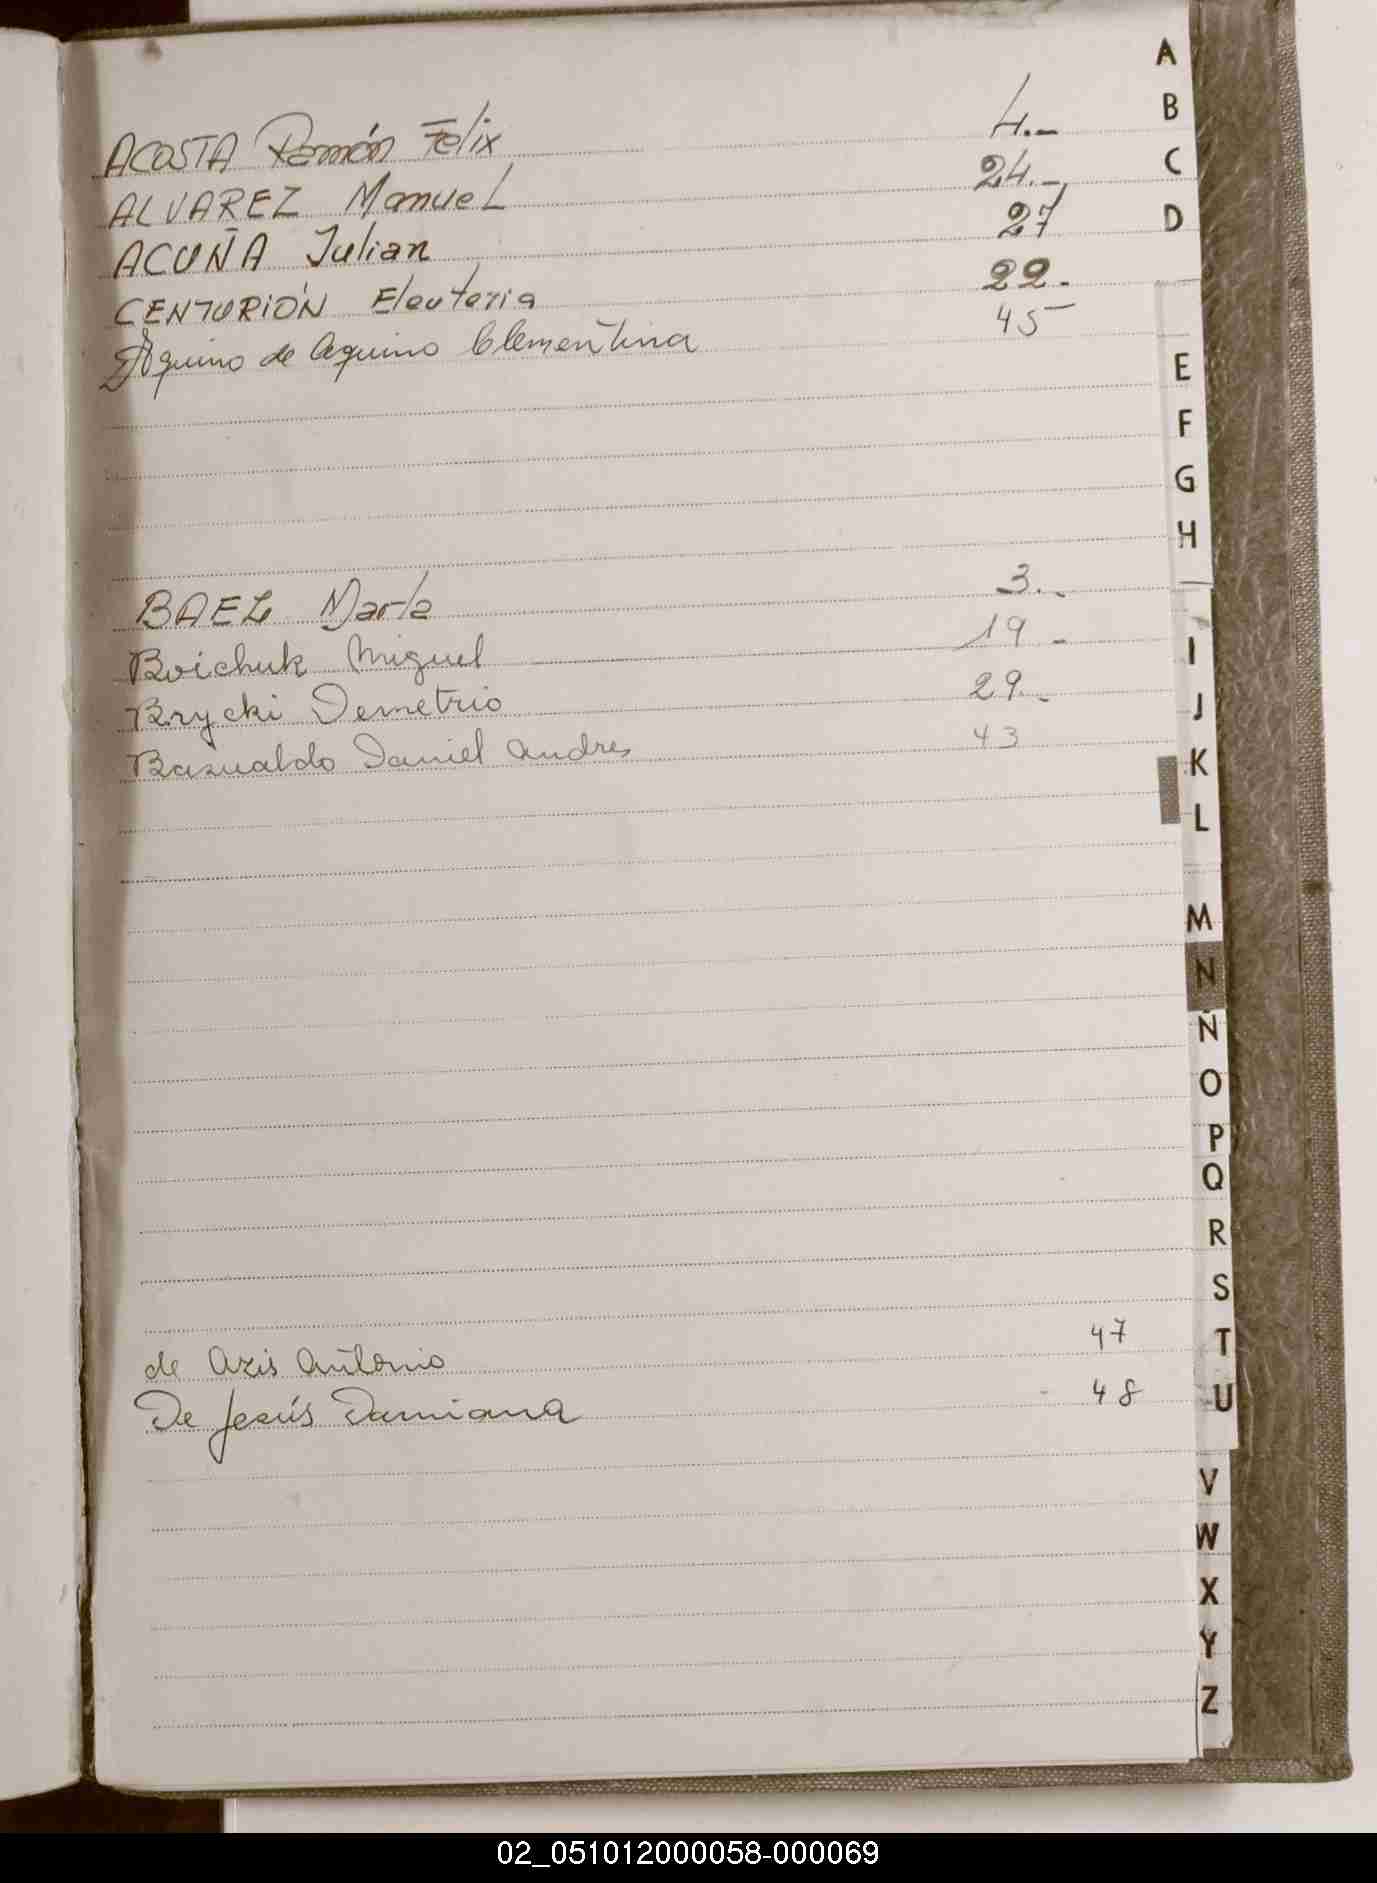 ACOSTA Ramón Felix 4.-
ALVAREZ Manuel 24.-
ACUÑA Julian 27
CENTURIÓN Eleuteria 22.-
Aquino de Aquino Clementina 45-
BAEZ Marta 3.-
Boichuk Miguel 19.-
Brycki Demetrio 29.-
Basualdo Daniel Andres 43
de Azis Antonio 47
De Jesús Damiana 48
A
B
C
D
E
F
G
H
I
J
K
L
M
N
Ñ
O
P
Q
R
S
T
U
V
W
X
Y
Z
02_051012000058-000069